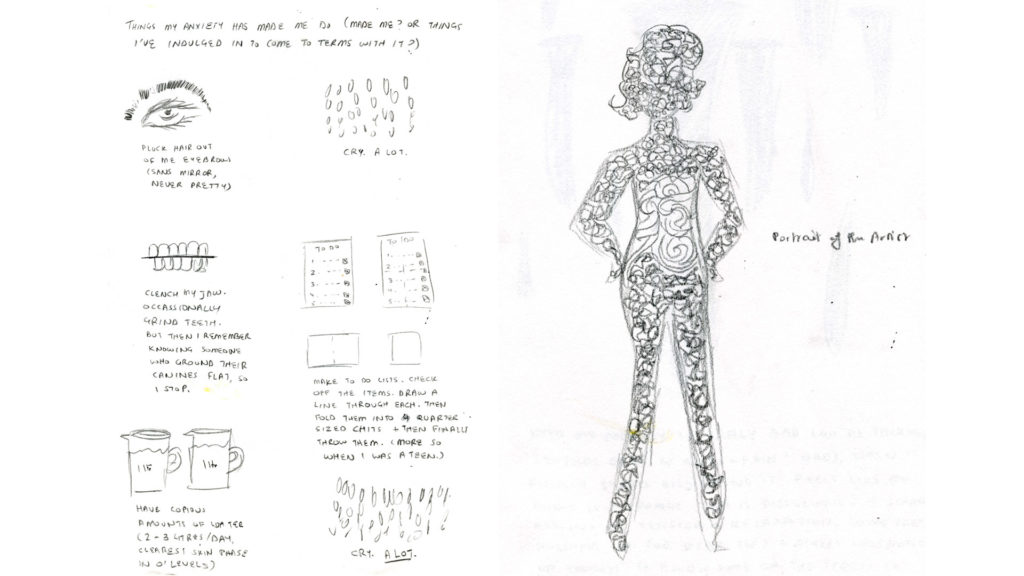 THINGS MY ANXIETY HAS MADE ME DO (MADE ME? OR THINGS
I'VE INDULGED IN TO COME TO TERMS WITH IT?)
PLUCK HAIR OUT
OF ME EYEBROWS
(SANS MIRROR,
NEVER PRETTY)
CRY. A LOT.
CLENCH MY JAW.
OCCASSIONALLY
GRIND TEETH.
BUT THEN I REMEMBER
KNOWING SOMEONE
WHO GROUND THEIR
CANINES FLAT, SO
I STOP.
TO DO
1.
2.
3.
4.
5.
TO DO
1.
2.
3.
4.
5.
MAKE TO DO LISTS. CHECK
OFF THE ITEMS. DRAW A
LINE THROUGH EACH. THEN
FOLD THEM INTO QUARTER
SIZED CHITS + THEN FINALLY
THROW THEM. (MORE SO
WHEN I WAS A TEEN.)
1 LS
1 LTR
HAVE COPIOUS
AMOUNTS OF WATER
(2-3 LTRS/DAY.
CLEAREST SKIN PHASE
IN O'LEVELS)
CRY. A LOT.
Portrait of the Artist